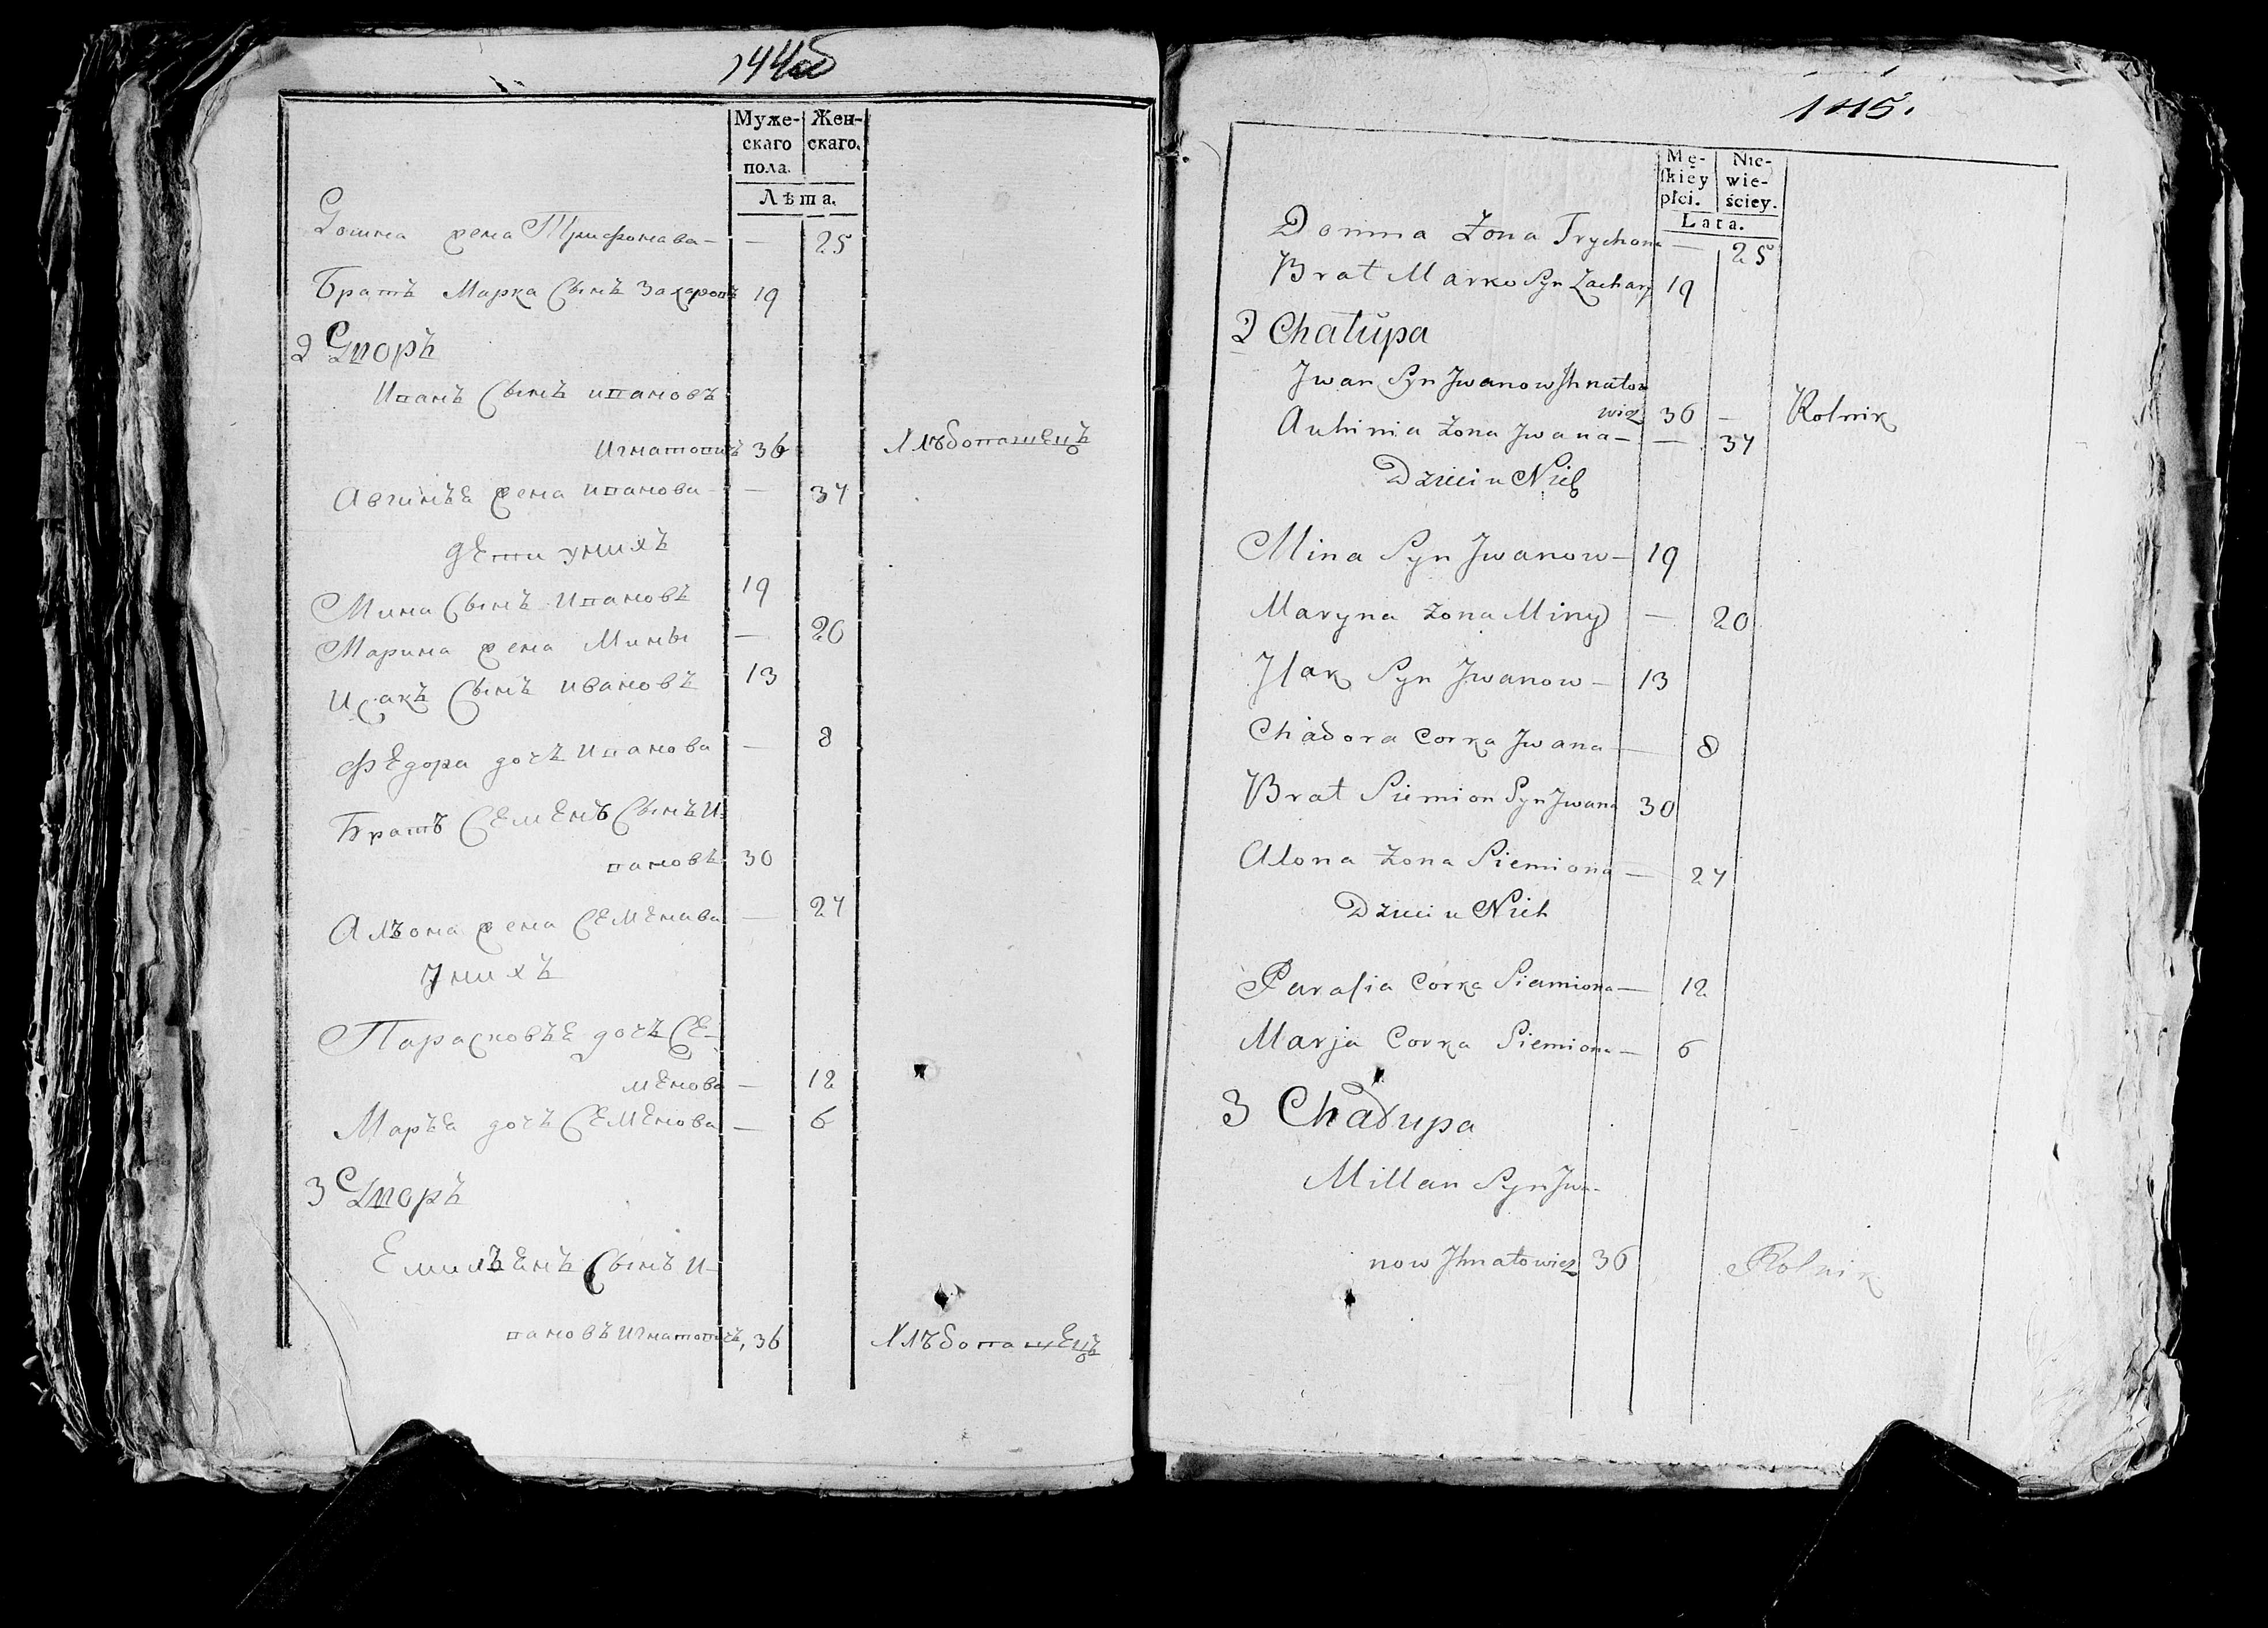 144об
Муже-
скаго
пола.
Жен-
скаго.
Лѣта.
Домна жена Трифонава — — 25
Братъ Марка Сынъ Захаровъ 19
2 Дворъ
Иванъ Сынъ ивановъ
Игнатовичъ 36 Хлѣбопашецъ
Авгинъя жена иванова — — 37
дети уних​ъ
Мина Сынъ Ивановъ 19
Марина жена Мины — 20
Исакъ Сынъ ивановъ 13
Федора дочъ Иванова — 8
Братъ Семенъ Сынъ И-
вановъ 30
Алъона жена Семенава — 27
Унихъ
Парасковъя дочъ Се-
менова — 12
Маръя дочъ Семенова — 6
3 Дворъ
Емилъенъ Сынъ И-
вановъ Игнатовичъ, 36 Хлѣбопашецъ
145.
Mę-
ſkiey
płci.
Nie-
wie-
ściey.
Lata.
Domna Żona Trychona — 25
Brat Marko Syn Zachary 19
2 Chałupa
Jwan Syn Jwanow Ihnatow
wicz 36 — Rolnik
Auhinia żona Jwana — — 37
Dzieci u Nich
Mina Syn Jwanow — 19
Maryna żona Miny — 20
Jſak Syn Jwanow — 13
Chadora Corka Jwana — 8
Brat Siemion Syn Jwana 30
Alona żona Siemiona — 27
Dzieci u Nich
Paraſia Córka Siemiona — 12
Marja Corka Siemiona — 6
3 Chałupa
Millan Syn Jwa-
now Jhnatowicz 36 Rolnik